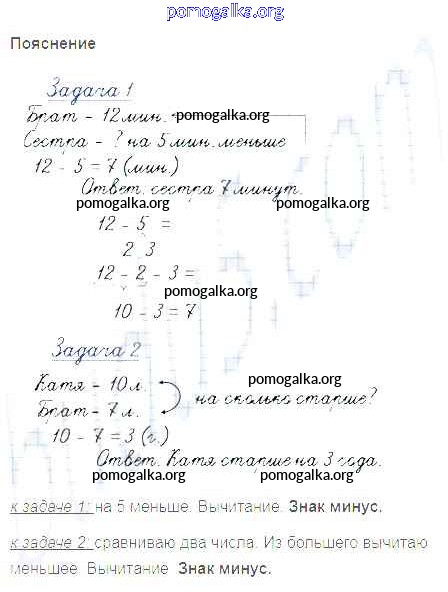 pomogalka.org
Пояснение
Задача 1
Брат - 12 мин. pomogalka.org
Сестра - ? на 5 мин. меньше
12 - 5 = 7 (мин.)
Ответ. сестра 7 минут.
pomogalka.org pomogalka.org
12 - 5 =
2 3
12 - 2 - 3 =
pomogalka.org
10 - 3 = 7
Задача 2
Катя - 10 л. pomogalka.org
Брат - 7 л. на сколько старше?
10 - 7 = 3 (г.)
Ответ. Катя старше на 3 года.
pomogalka.org pomogalka.org
к задаче 1: на 5 меньше. Вычитание. Знак минус.
к задаче 2: сравниваю два числа. Из большего вычитаю
меньшее. Вычитание. Знак минус.